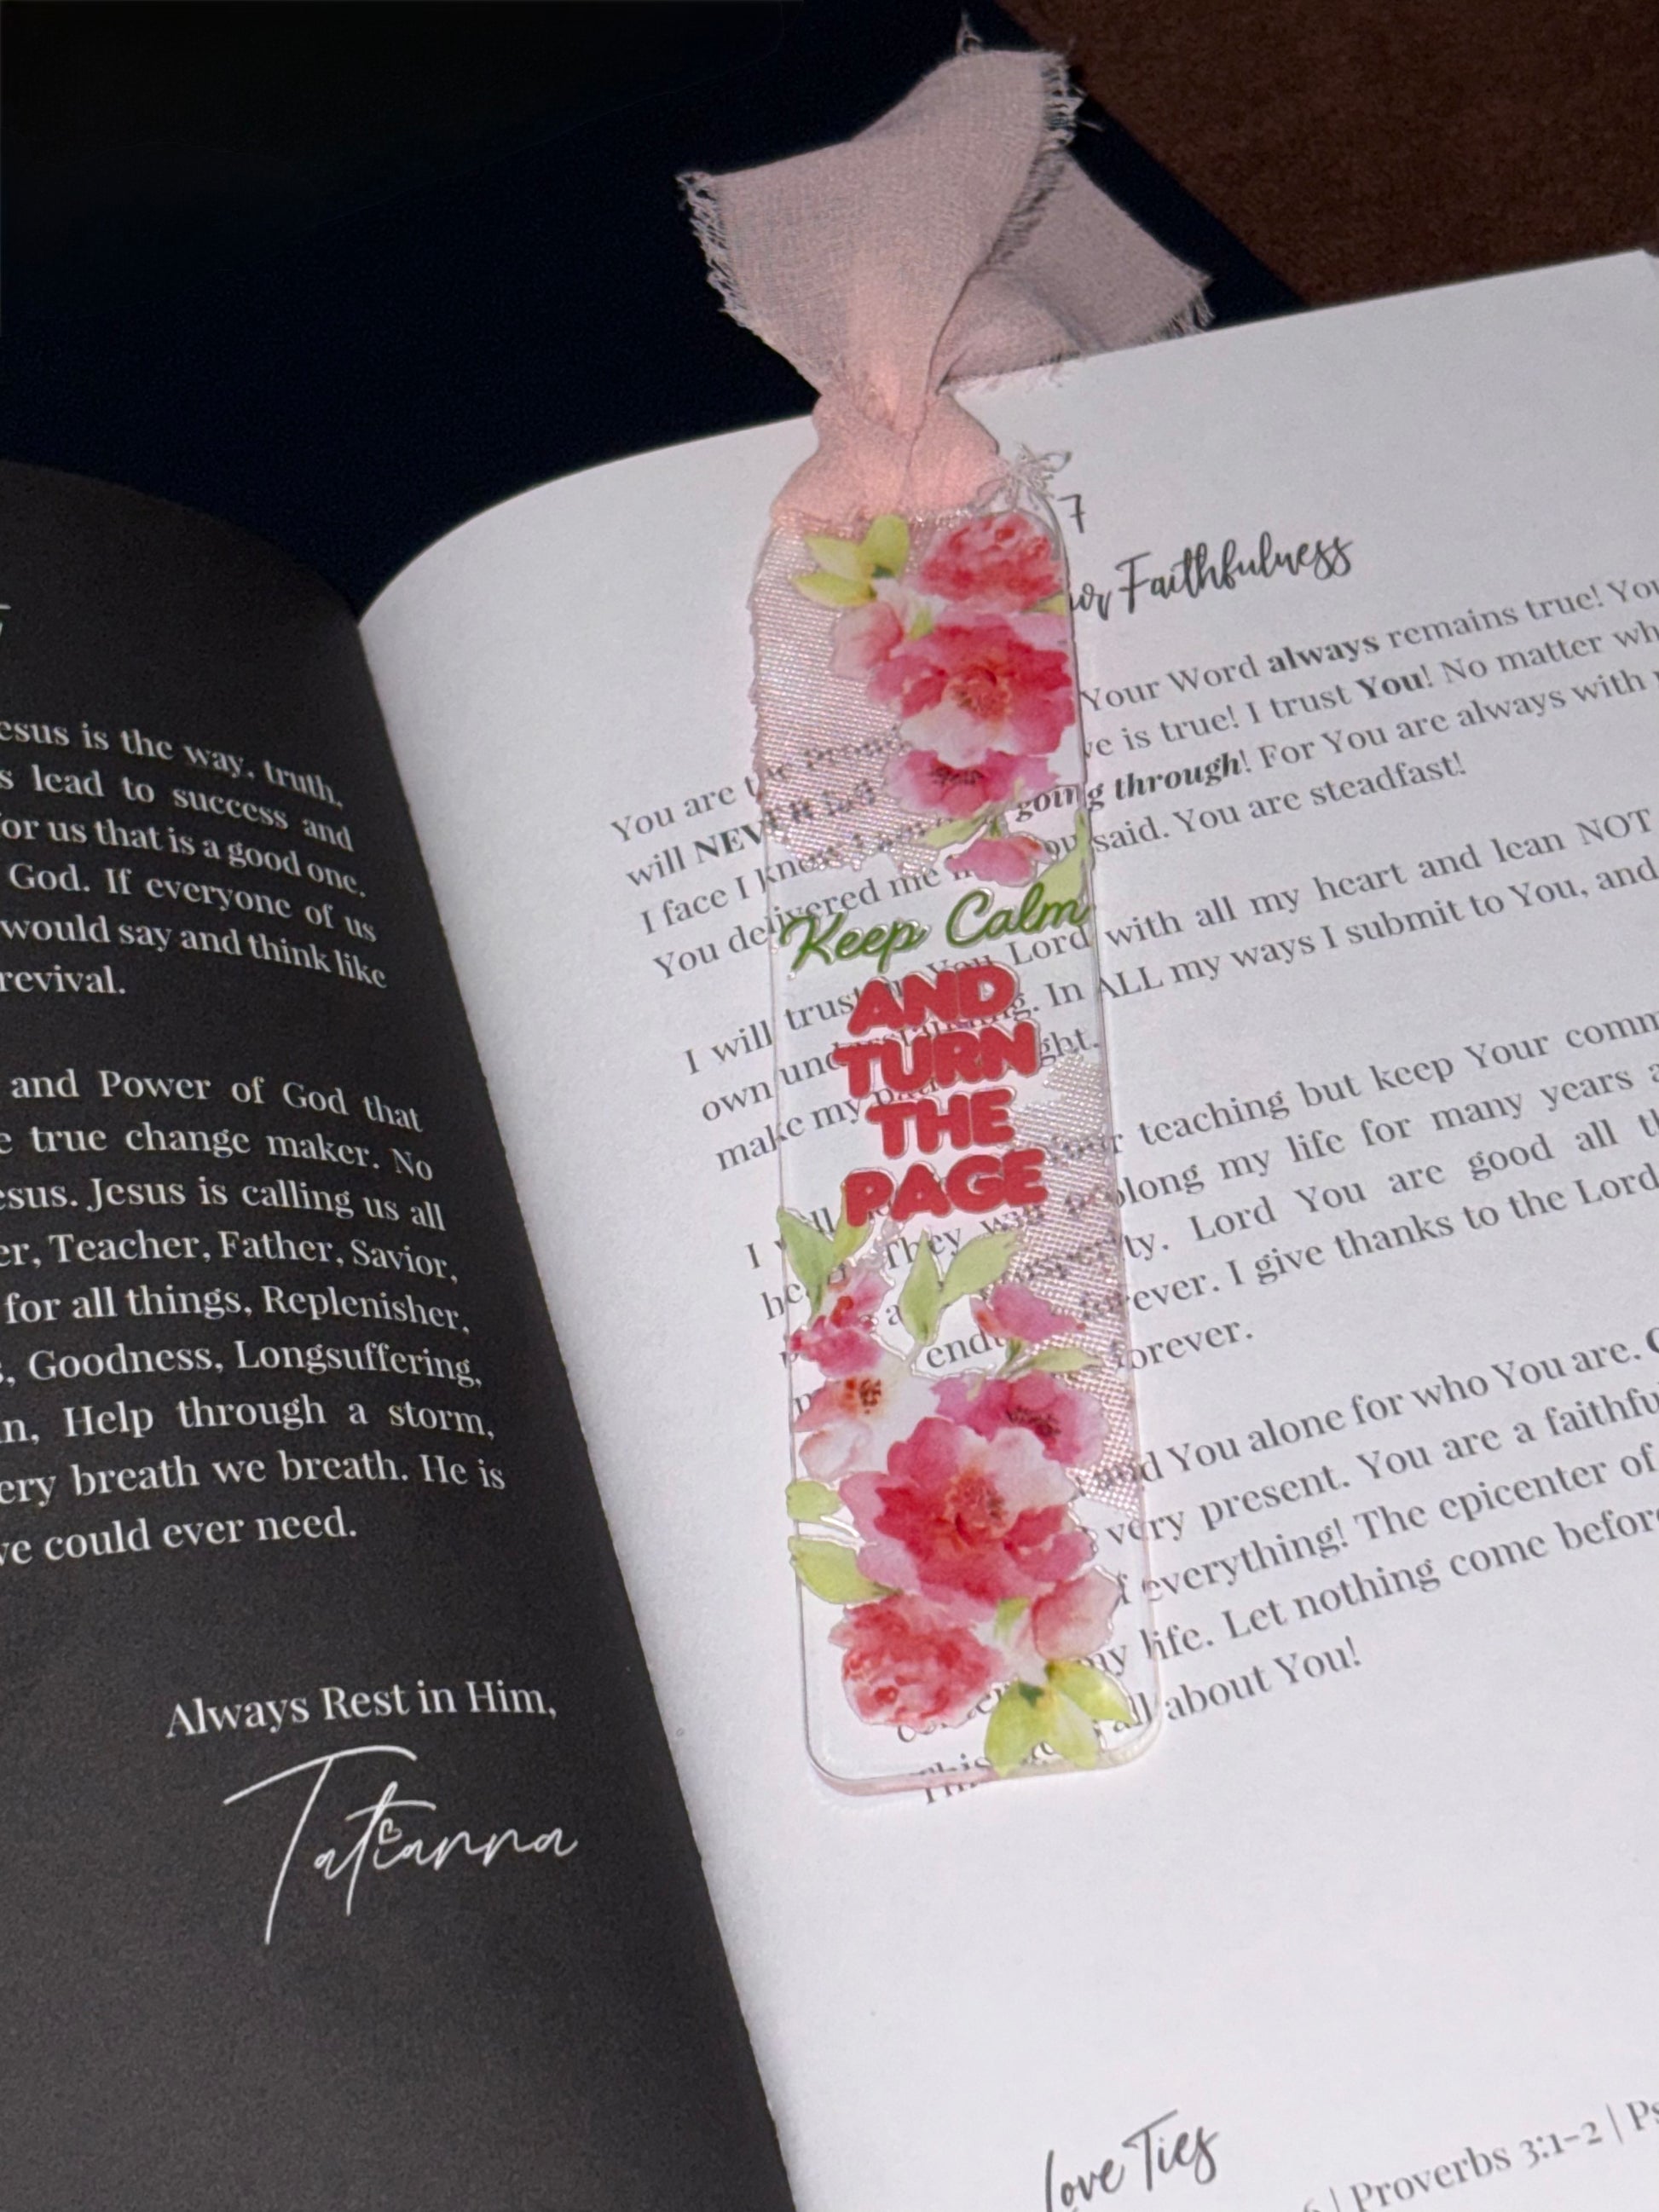 esus is the way, truth,
s lead to success and
for us that is a good one.
God. If everyone of us
would say and think like
revival.
and Power of God that
e true change maker. No
esus. Jesus is calling us all
er, Teacher, Father, Savior,
for all things, Replenisher,
s, Goodness, Longsuffering,
n, Help through a storm,
ery breath we breath. He is
we could ever need.
Always Rest in Him,
Tatianna
7
Faithfulness
You are the Your Word always remains true! You
will NEVER ve is true! I trust You! No matter wh
I face I know going through! For You are always with
You delivered me you said. You are steadfast!
I will trust in You Lord with all my heart and lean NOT
own understanding. In ALL my ways I submit to You, and
make my
teaching but keep Your comm
They will prolong my life for many years a
Lord You are good all th
forever. I give thanks to the Lord
endures forever.
and You alone for who You are.
very present. You are a faithfu
everything! The epicenter of
my life. Let nothing come before
This all about You!
Keep Calm
AND
TURN
THE
PAGE
Love Ties
6 | Proverbs 3:1-2 | Ps